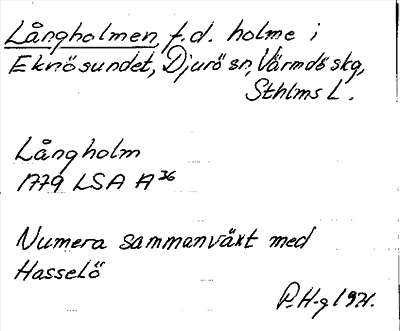 Långholmen, f.d. holme i
Eknösundet, Djurö sn, Värmdö skg,
Sthlms L.
Långholm
1779 LSA A 36
Numera sammanväxt med
Hasselö
P. H-g 1971.